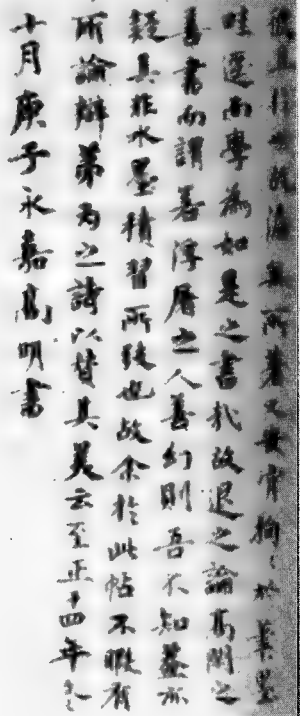 所著又安肯拘〻於筆墨
哇邊而學為如是之書哉故退之論高閑之
善書而謂善浮屠之人善幻則吾不知蓋亦
疑其非水墨積習所致也故余於此帖不暇有
所論辯弟為之詩以贊其美云至正十四年冬
十月庚子永嘉高明書